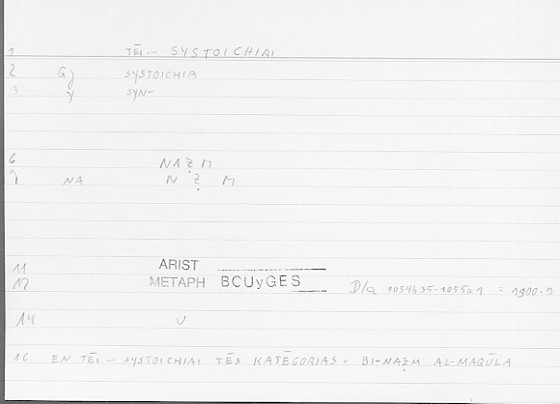 1 TĒI ... SYSTOICHIAI
2 Gj SYSTOICHIA
3 y SYN-
6 NAẒM
7 NA N Ẓ M
11 ARIST
12 METAPH BCUyGES D/a 1054b35-1055a1 = 1300.2
14 U
16 EN TĒI ... SYSTOICHIAI TĒS KATĒGORIAS = BI-NAẒM AL-MAQŪLA